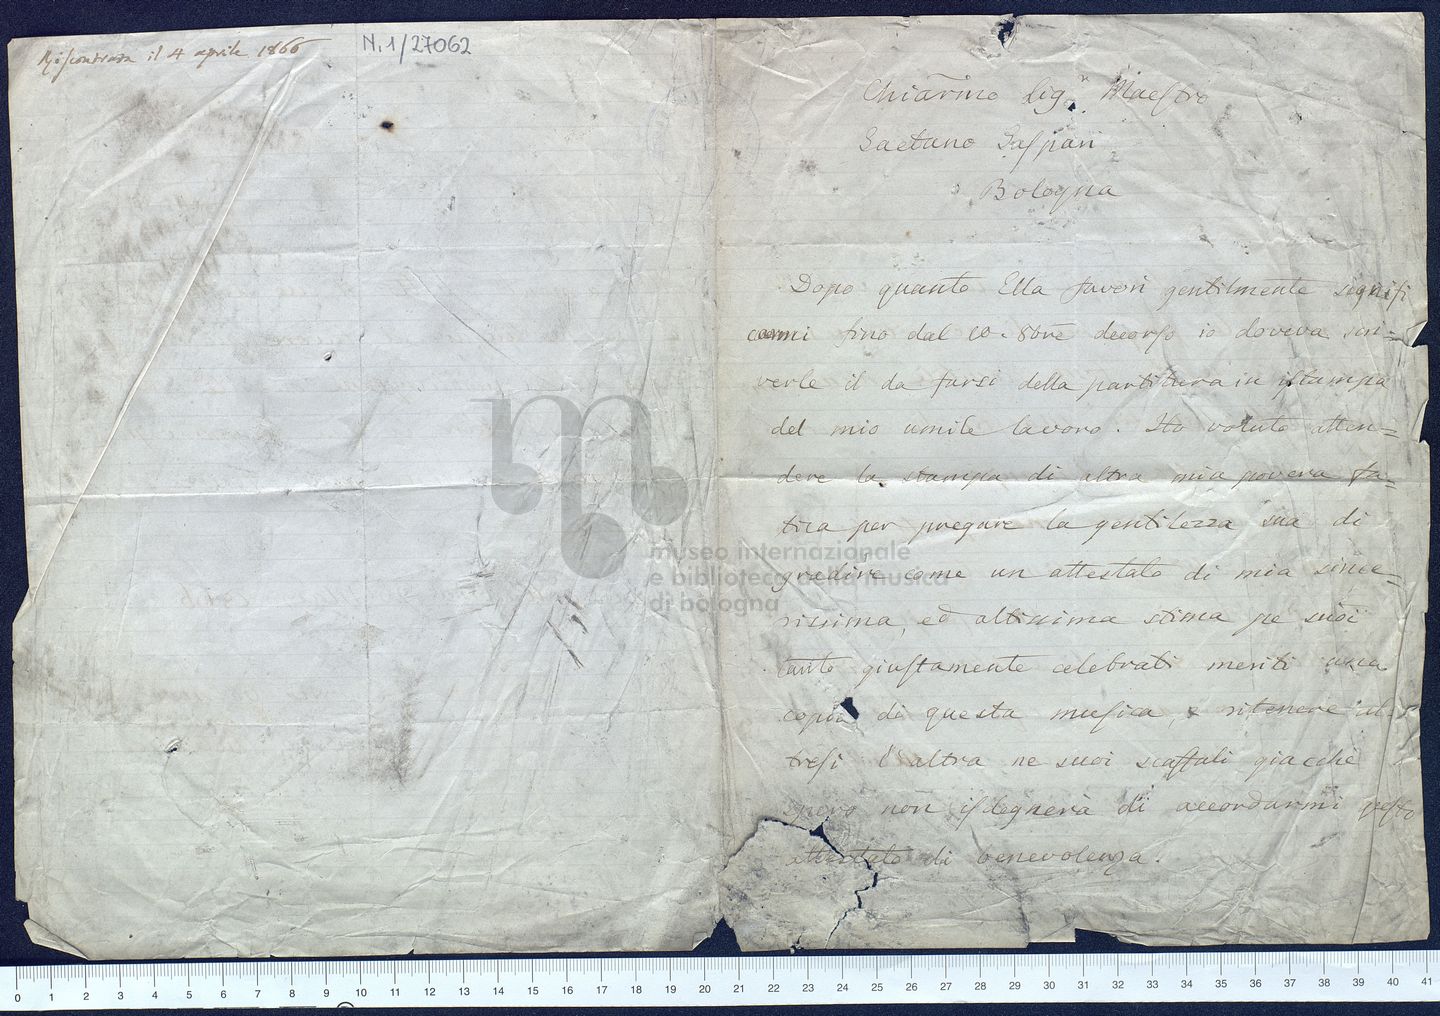 Riscontrata il 4 aprile 1866
N. 1/27062
Chiar̃mo Sig.r Maestro
Gaetano Gaspari
Bologna
Dopo quanto Ella favorì gentilmente signifi
carmi fino dal 10. 8bre decorso io doveva scri-
verle il da farsi della partitura in istampa
del mio umile lavoro. Ho voluto atten=
dere la stampa di altra mia povera fa=
tica per pregare la gentilezza sua di
gradire come un attestato di mia since=
rissima, ed altissima stima pe suoi
tanto giustamente celebrati meriti una
copia di questa musica, e ritenere al-
tresì l'altra ne suoi scaffali giacchè
spero non isdegnerà di accordarmi questo
attestato di benevolenza.
museo internazionale
e biblioteca della musica
di bologna
0 1 2 3 4 5 6 7 8 9 10 11 12 13 14 15 16 17 18 19 20 21 22 23 24 25 26 27 28 29 30 31 32 33 34 35 36 37 38 39 40 41